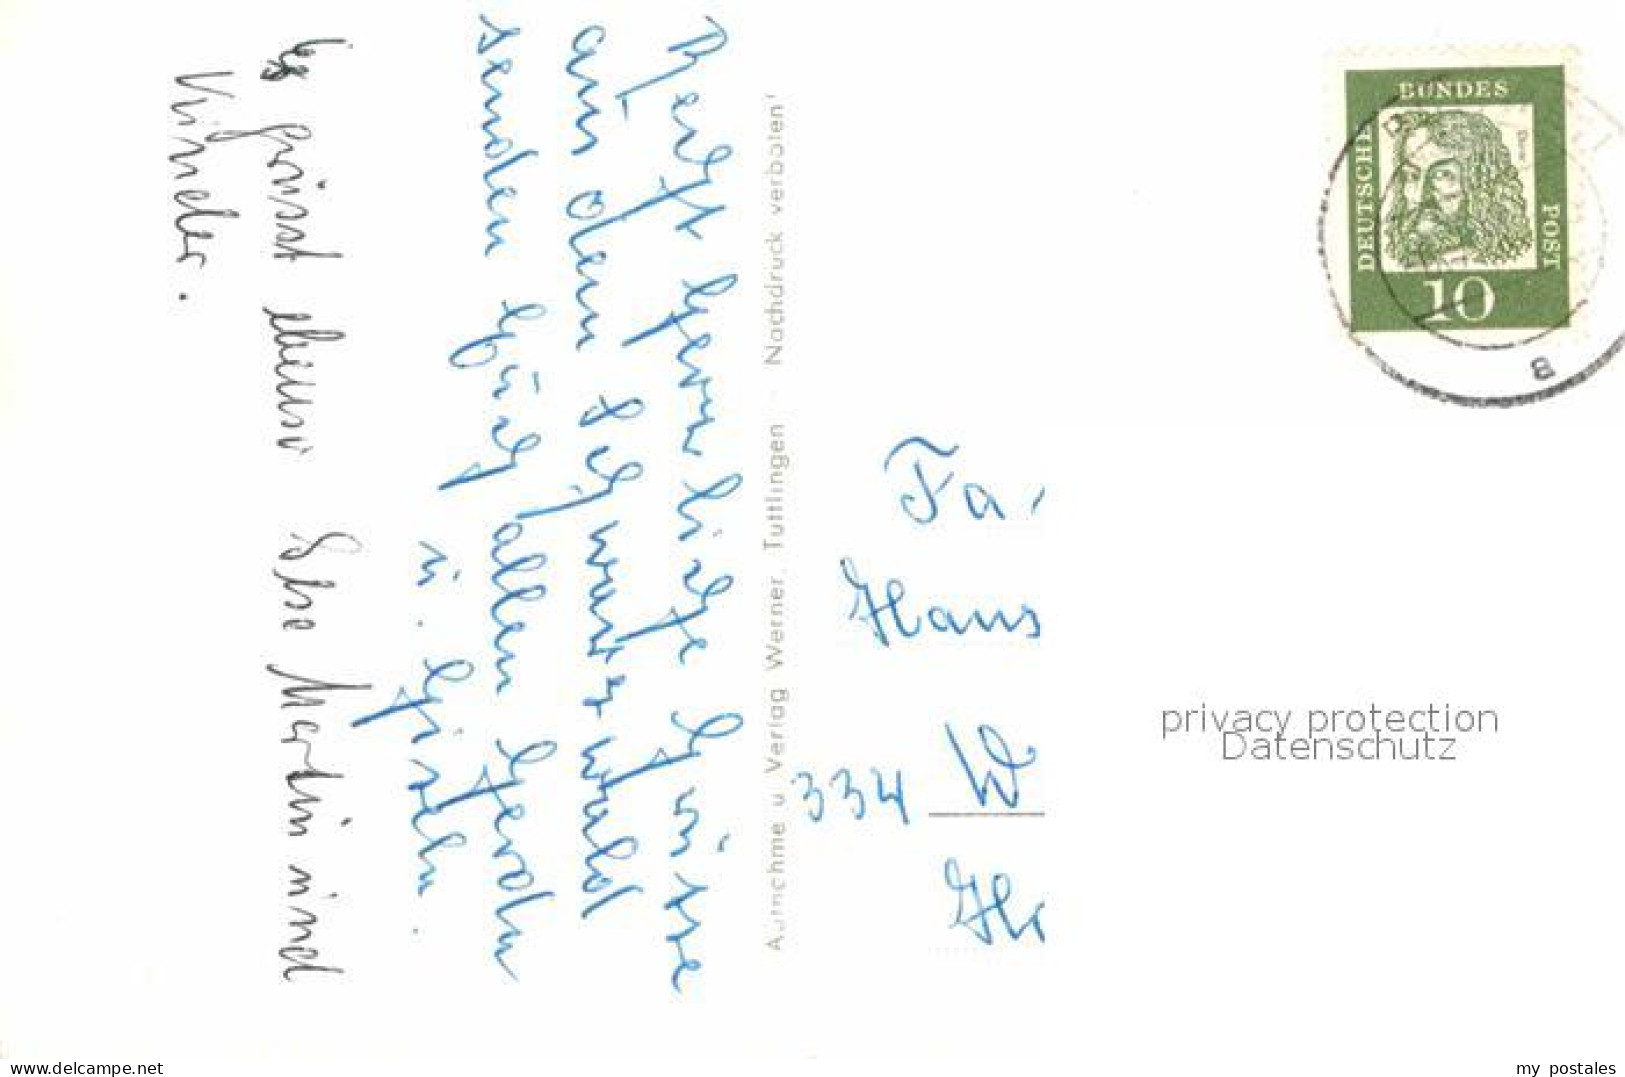 Recht herzliche Grüsse
aus dem Schwarzwald
senden Euch allen Gerda
u. Gisela.
Es grüsst ebenso Ilse Martin und
Kinder.
Aufnahme u Verlag Werner, Tuttlingen - Nachdruck verboten!
BUNDES
DEUTSCHE
POST
10
a
Fa.
Hans
334 W
Ho
privacy protection
Datenschutz
www.delcampe.net
my_postales